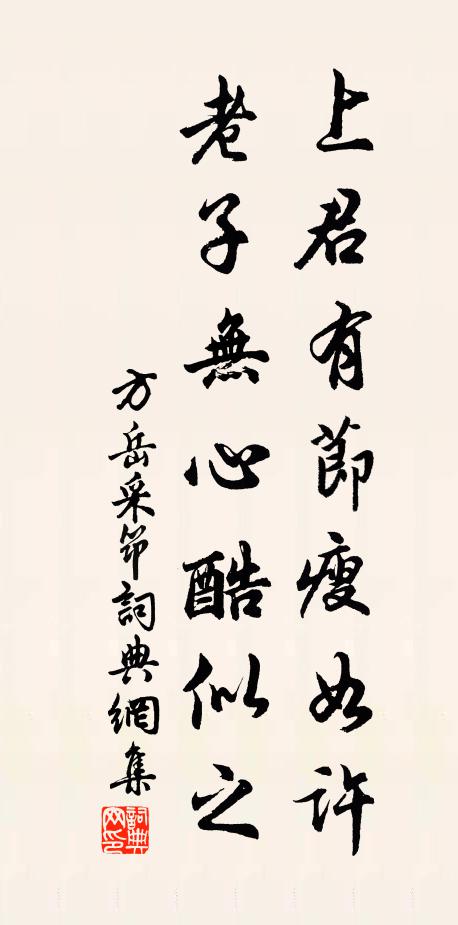 上君有節瘦如許
老子無心酷似之
方岳采筇詞典網集
詞典
网印